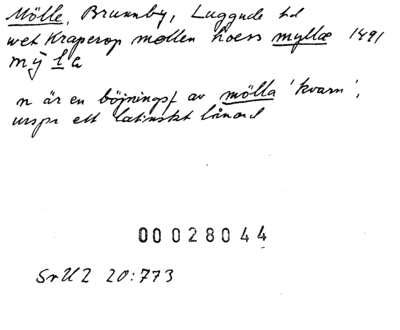 Mölle, Brunnby, Luggude hd
wet Kraperop mollen hoess myllæ 1491
mȳ l a
n är en böjningsf av mölla 'kvarn',
urspr ett latinskt lånord
00028044
SvU2 20:773